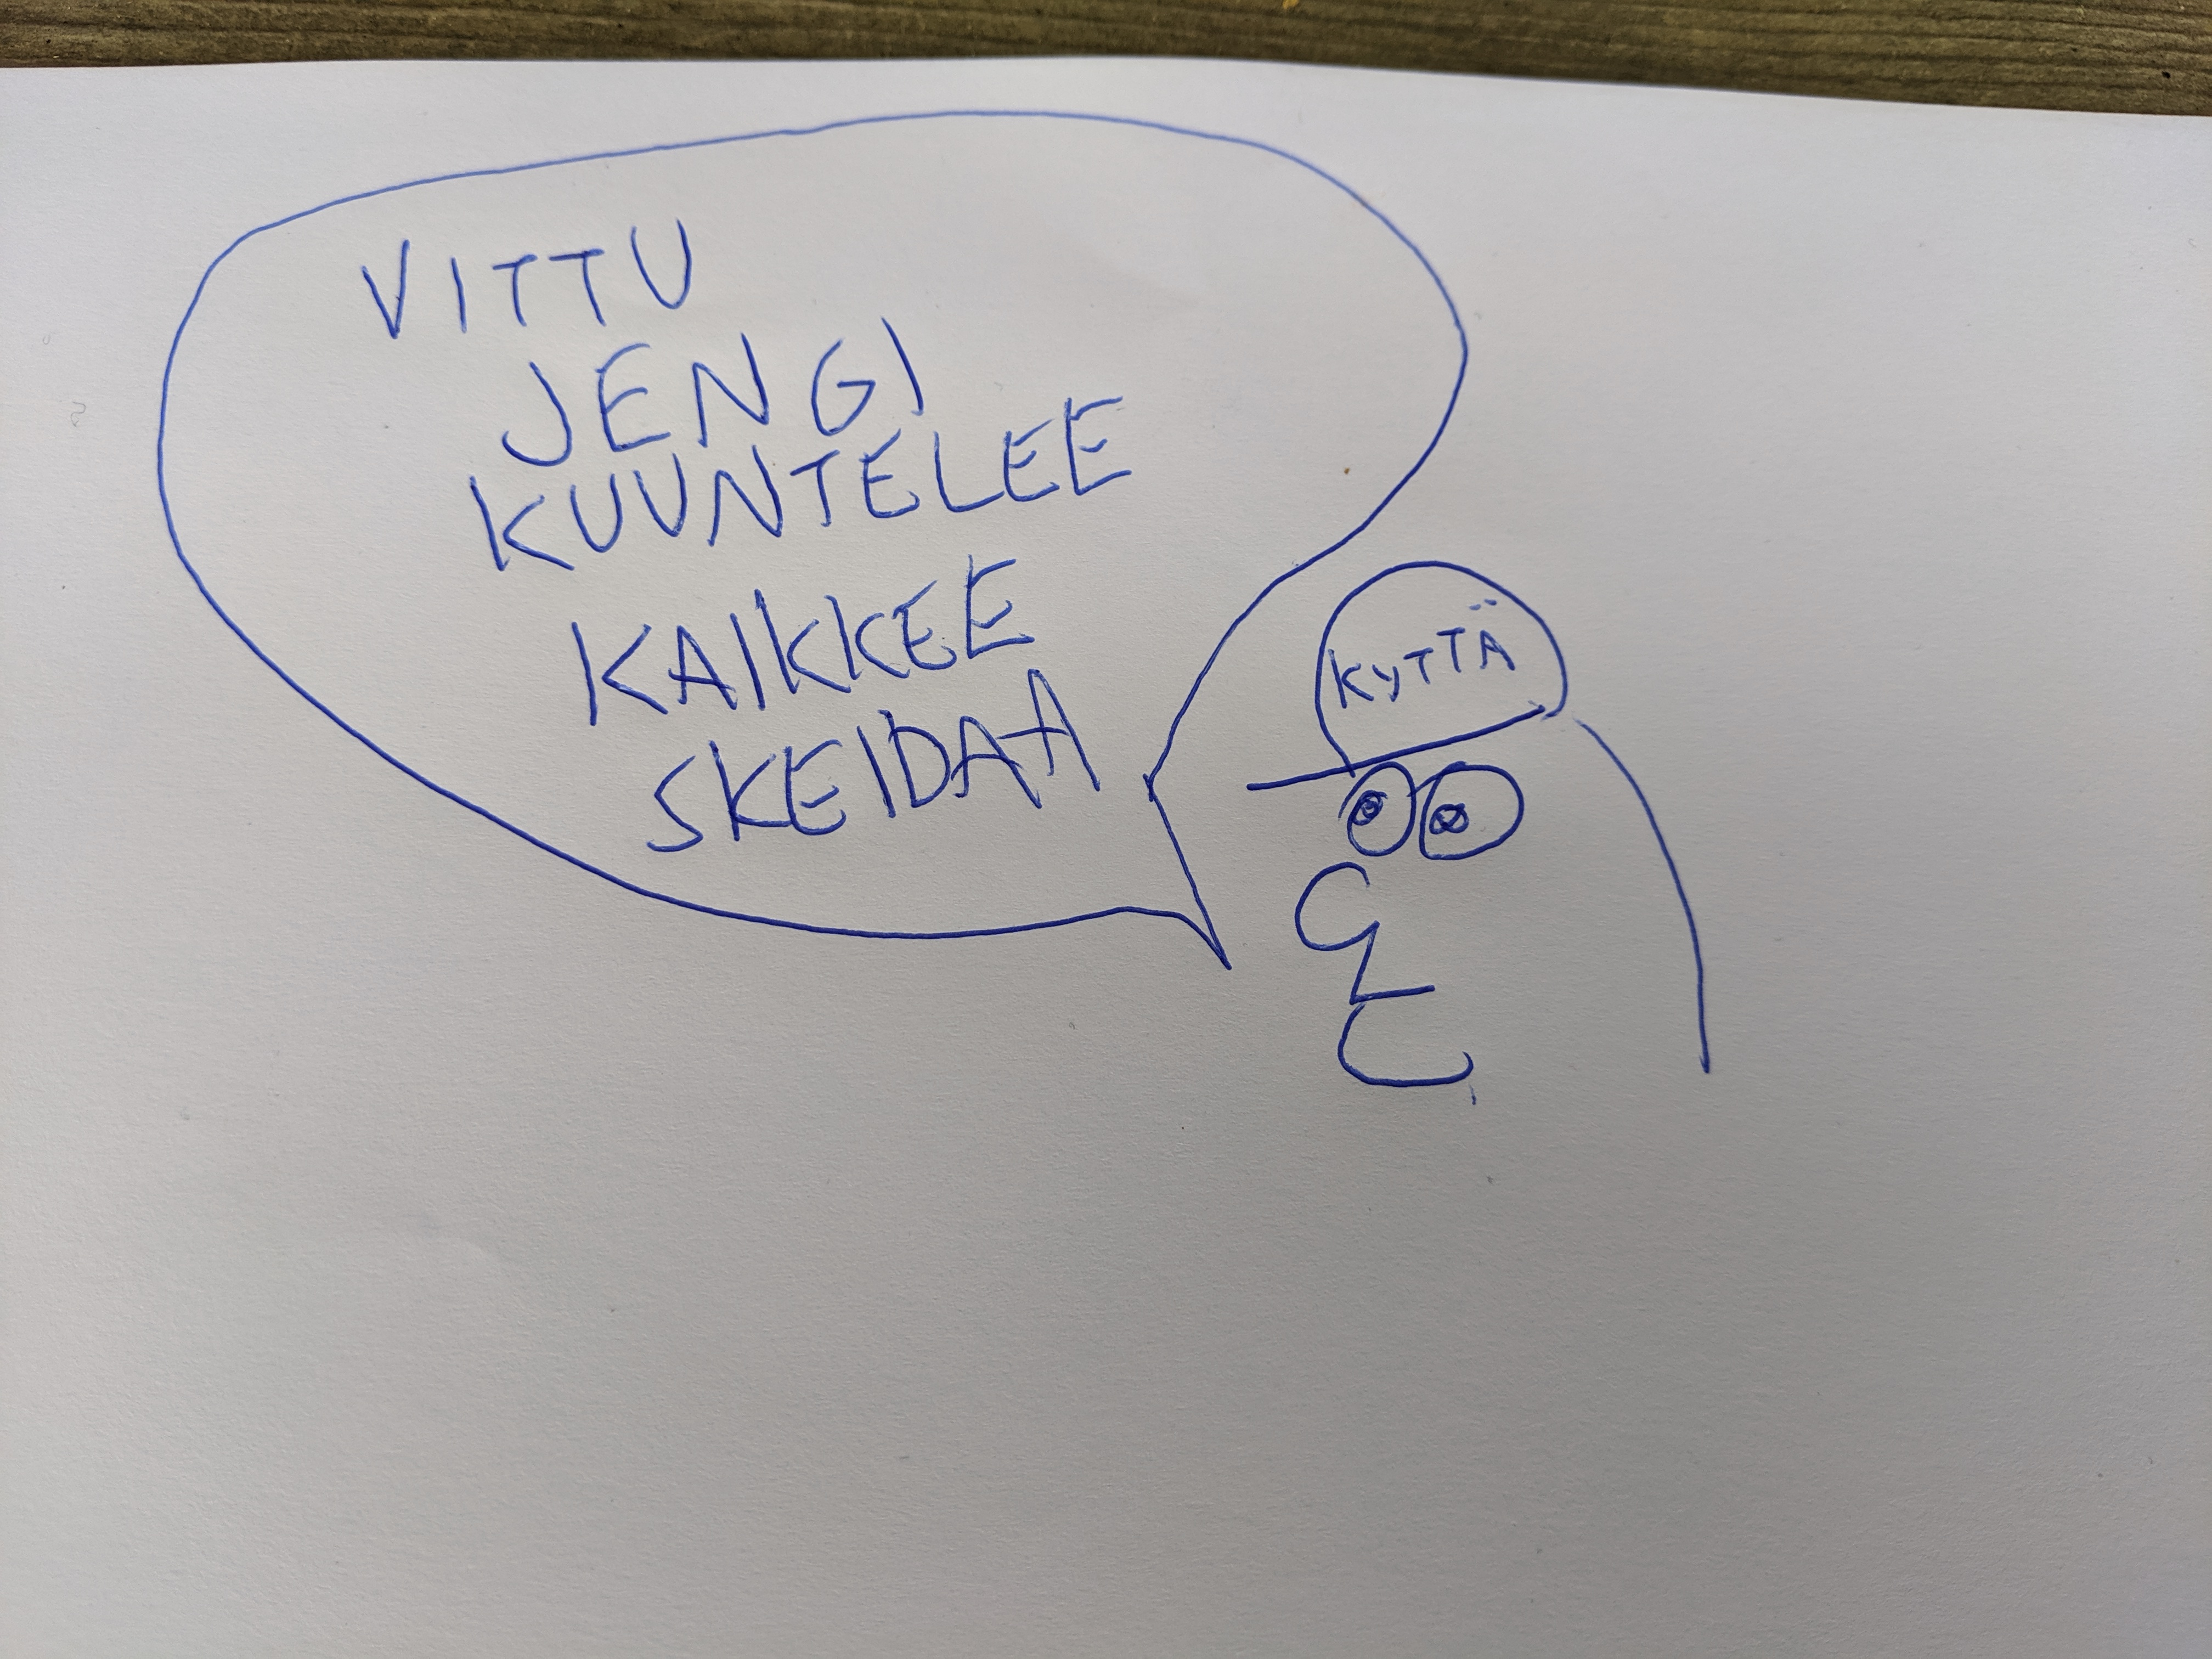 VITTU
JENGI
KUUNTELEE
KAIKKEE
SKEIDAA
KYTTÄ